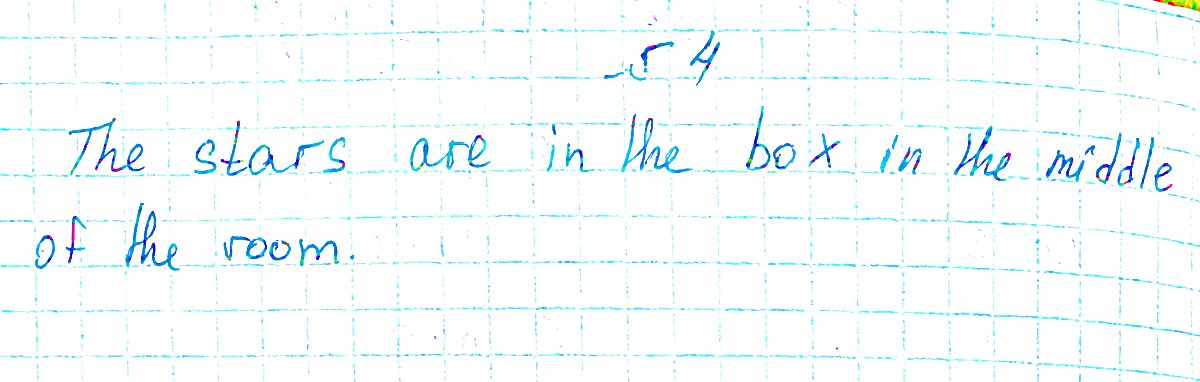 4
The stars are in the box in the middle
of the room.